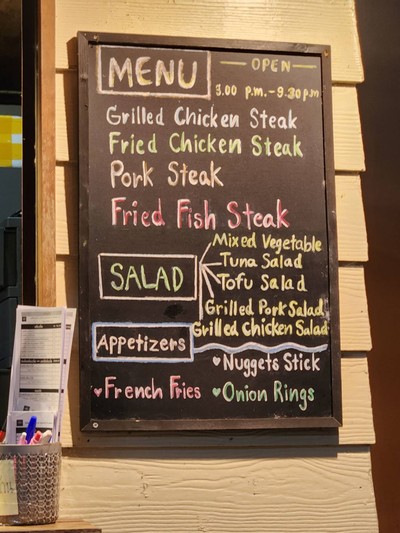 MENU
OPEN
3.00 p.m.-9.30pm
Grilled Chicken Steak
Fried Chicken Steak
Pork Steak
Fried Fish Steak
SALAD
Mixed Vegetable
Tuna Salad
Tofu Salad
Grilled Pork Salad
Grilled Chicken Salad
Appetizers
♥Nuggets Stick
♥French Fries
♥Onion Rings